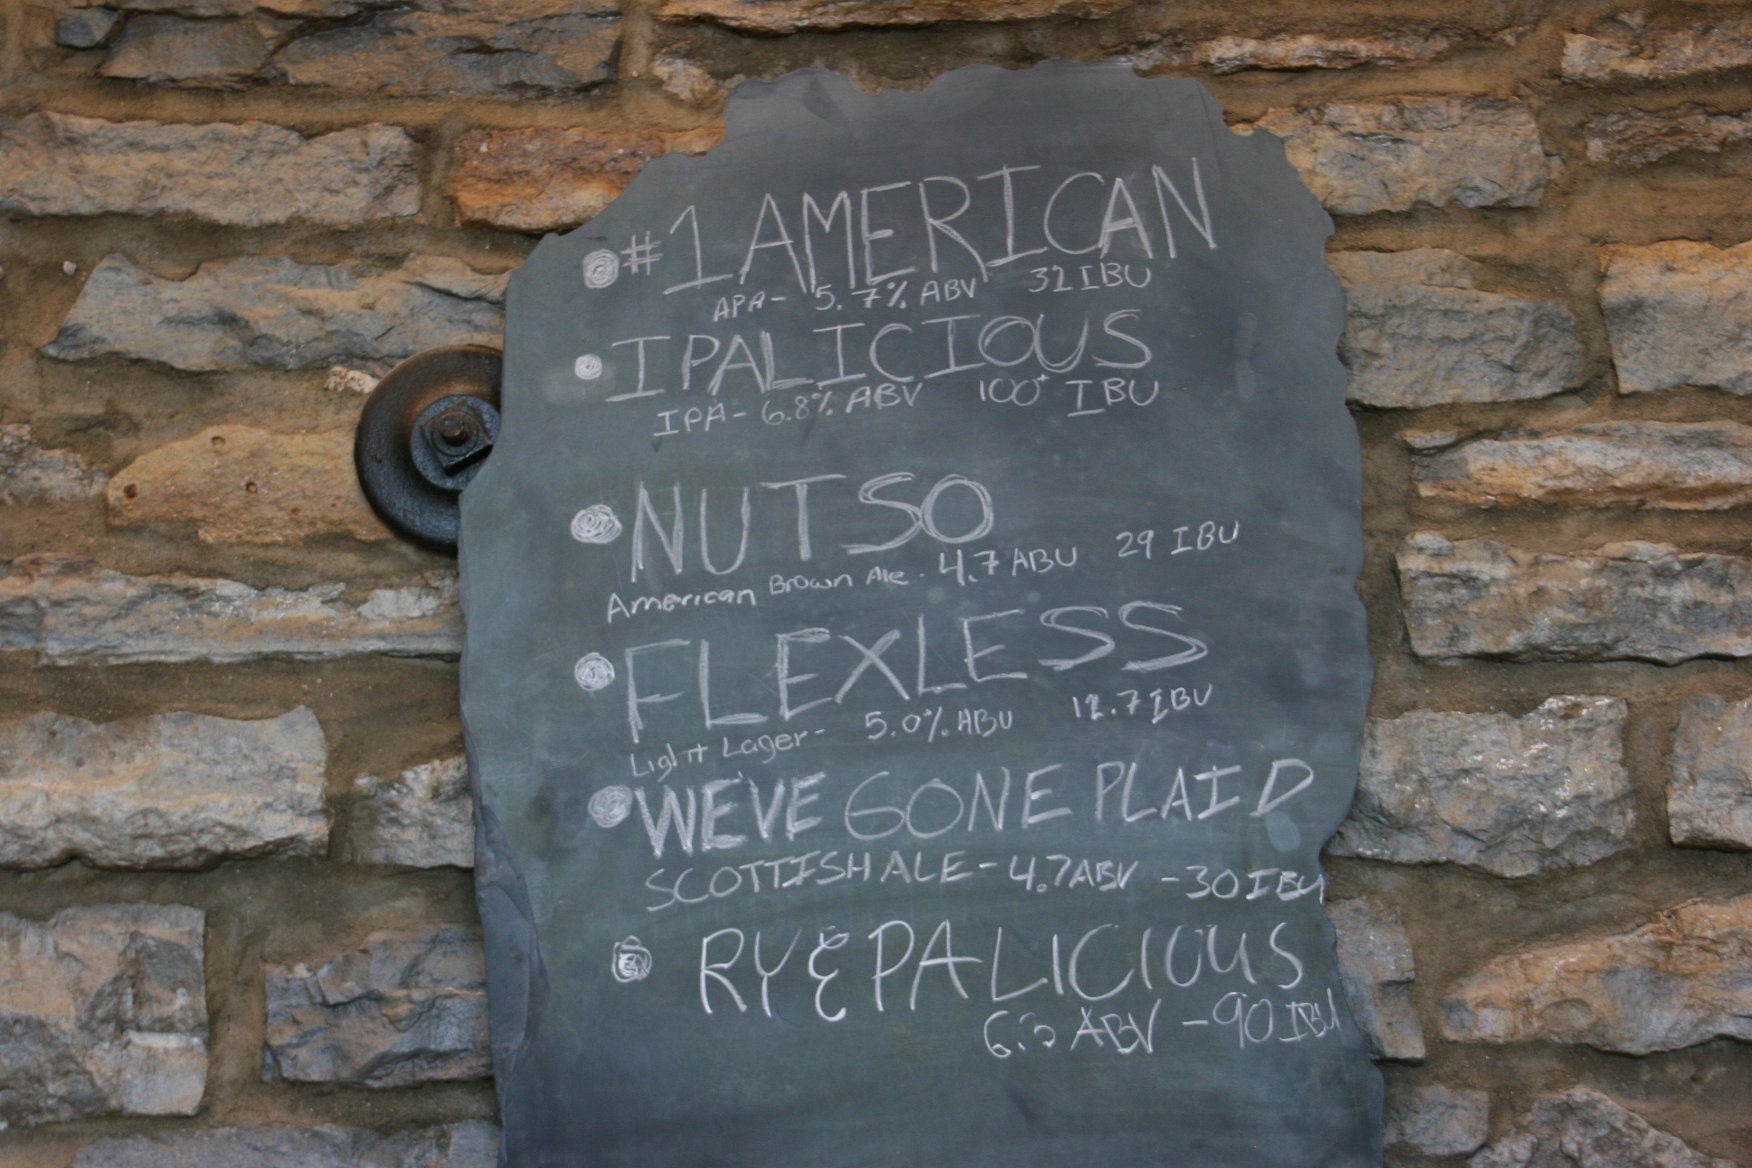 #1 AMERICAN
APA- 5.7% ABV 32 IBU
IPALICIOUS
IPA- 6.8% ABV 100+ IBU
NUTSO
American Brown Ale - 4.7 ABU 29 IBU
FLEXLESS
Light Lager- 5.0% ABU 12.7 IBU
WE'VE GONE PLAID
SCOTTISH ALE - 4.7 ABV - 30 IBU
RYEPALICIOUS
6.3 ABV - 90 IBU